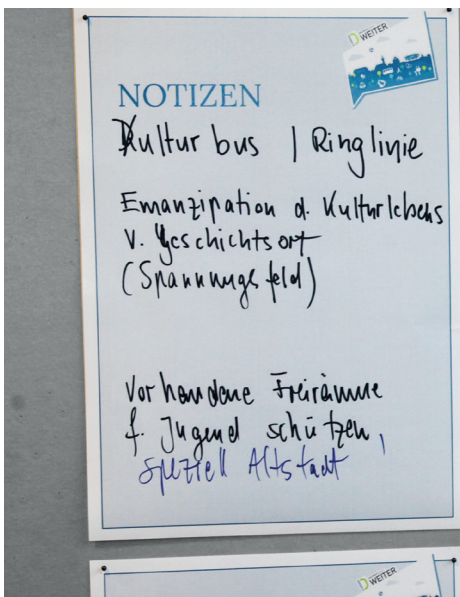 WEITER
NOTIZEN
Kulturbus | Ringlinie
Emanzipation d. Kulturlebens
v. Geschichtsort
(Spannungsfeld)
Vorhandene Freiräume
f. Jugend schützen,
speziell Altstadt!
WEITER